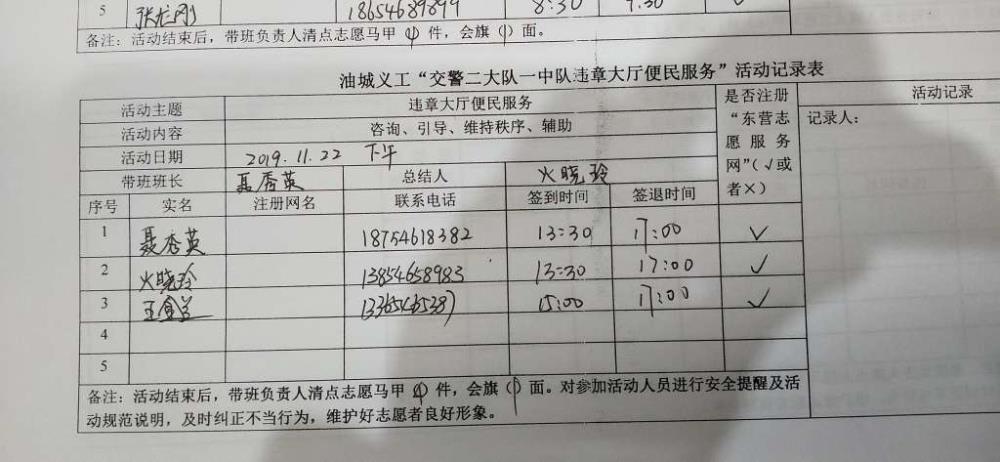 5 张龙刚 18654689899 8:30 9:30 ✓
备注：活动结束后，带班负责人清点志愿马甲 4 件，会旗 1 面。
油城义工“交警二大队一中队违章大厅便民服务”活动记录表
活动主题 违章大厅便民服务 是否注册“东营志愿服务网”（√或者×） 活动记录
活动内容 咨询、引导、维持秩序、辅助 记录人：
活动日期 2019.11.22 下午
带班班长 聂秀英 总结人 火晓玲
序号 实名 注册网名 联系电话 签到时间 签退时间
1 聂秀英 18754618382 13:30 17:00 ✓
2 火晓玲 13854658983 13:30 17:00 ✓
3 13365465387 15:00 17:00 ✓
4
5
备注：活动结束后，带班负责人清点志愿马甲 4 件，会旗 1 面。对参加活动人员进行安全提醒及活
动规范说明，及时纠正不当行为，维护好志愿者良好形象。